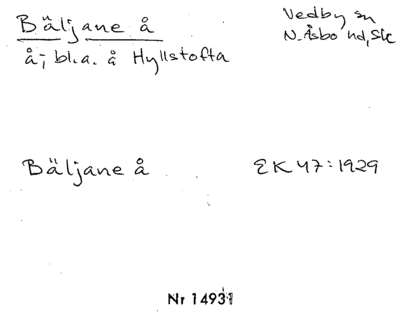 Bäljane å
Vedby sn
å; bl.a. å Hyllstofta
N. Åsbo hd, Sk
Bäljane å
EK 47:1929
Nr 14931